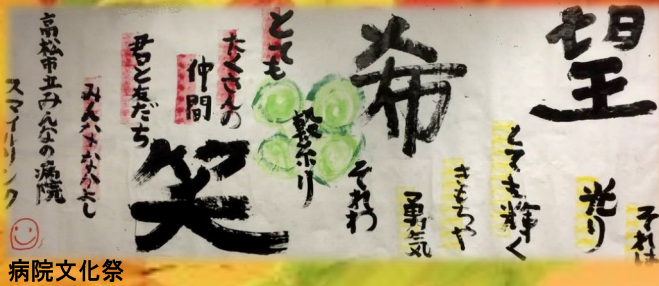 望
それは
光り
とても輝く
きもちや
希
勇気
それわ
繋り
とても
たくさんの
仲間
笑
君と友だち
みんななかよし
高松市立みんなの病院
スマイルリンク
病院文化祭